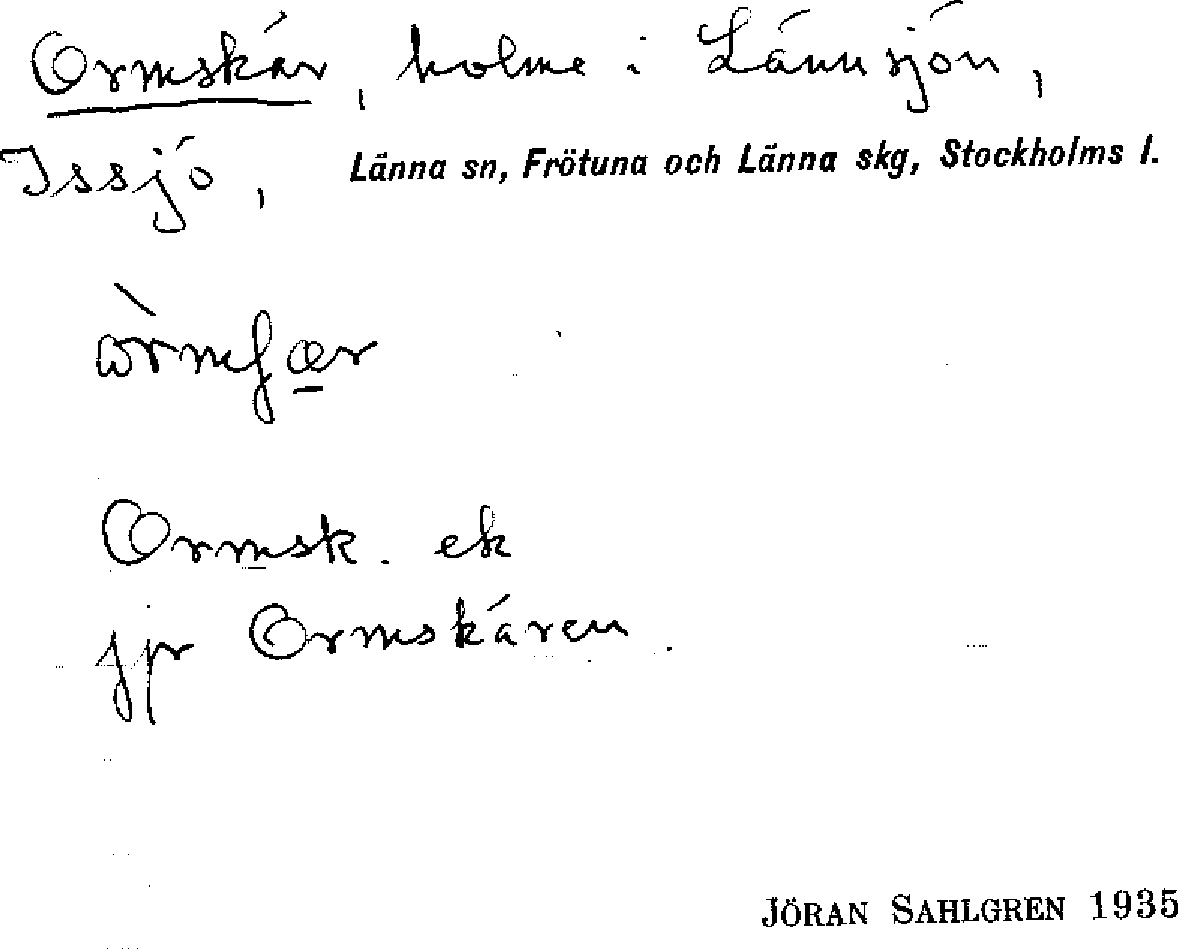 Ormskär, holme i Lännsjön,
Issjö, Länna sn, Frötuna och Länna skg, Stockholms l.
òrmʃær
Ormsk. ek
jpr Ormskären.
JÖRAN SAHLGREN 1935